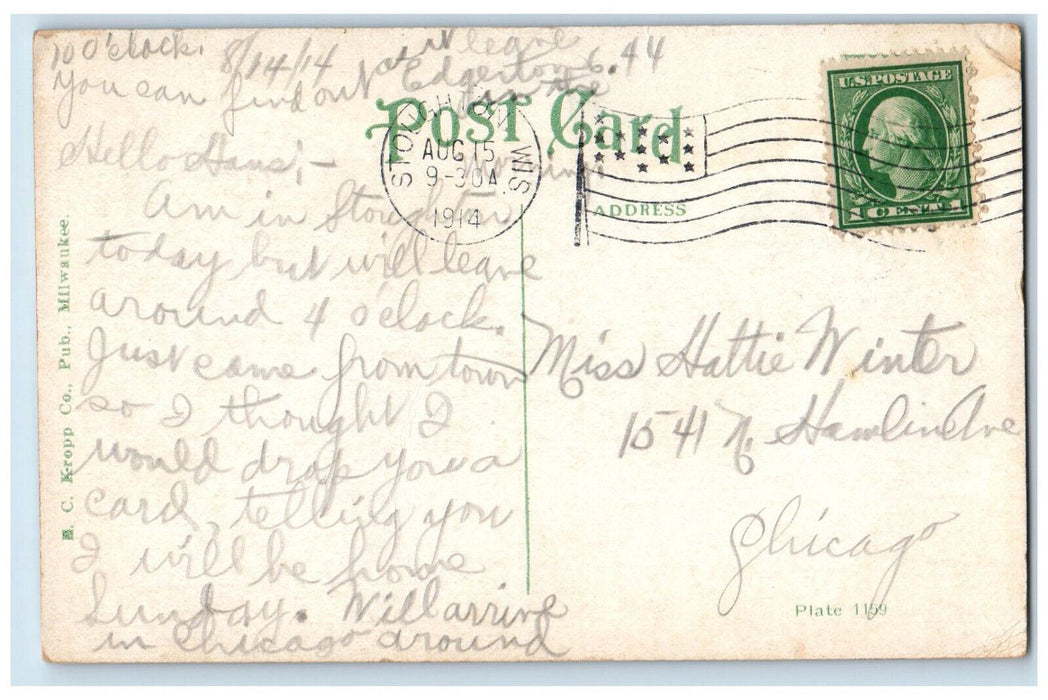 10 O'clock.
8/14/14
I leave
Edgerton 6.44
You can find out at
in the
Post Card
STOUGHTON WIS.
AUG 15
9-30A
1914
U.S. POSTAGE
1 CENT 1
ADDRESS
Hello Hans; -
Am in Stoughton
today but will leave
around 4 oclock.
Just came from town
so I thought I
would drop you a
card, telling you
I will be home
Sunday. Will arrive
in Chicago around
Miss Hattie Winter
1541 N. Hamlin Ave
Chicago
Plate 1159
E. C. Kropp Co., Pub., Milwaukee.